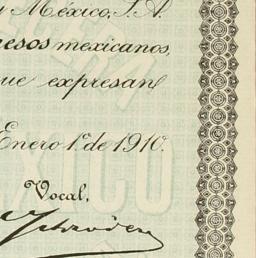 y México, S.A.
pesos mexicanos,
que expresan
Enero 1º de 1910.
Vocal,